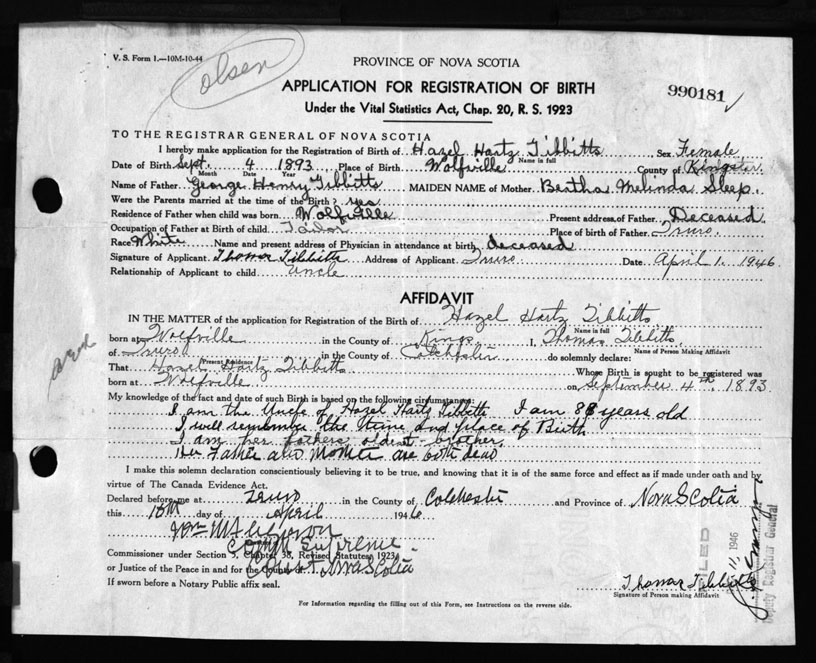 V. S. Form 1.—10M-10-44
olsen
PROVINCE OF NOVA SCOTIA
APPLICATION FOR REGISTRATION OF BIRTH
990181
Under the Vital Statistics Act, Chap. 20, R. S. 1923
TO THE REGISTRAR GENERAL OF NOVA SCOTIA
I hereby make application for the Registration of Birth of Hazel Hartz Tibbitts Sex Female
Name in full
Date of Birth Sept. 4 1893 Place of Birth Wolfville County of Kings
Month Date Year
Name of Father George Henry Tibbitts MAIDEN NAME of Mother Bertha Melinda Sleep.
Were the Parents married at the time of the Birth? yes
Residence of Father when child was born Wolfville Present address of Father Deceased
Occupation of Father at Birth of child Tailor Place of birth of Father Truro.
Race White Name and present address of Physician in attendance at birth deceased
Signature of Applicant Thomas Tibbitts Address of Applicant Truro Date April 1. 1946
Relationship of Applicant to child uncle
AFFIDAVIT
IN THE MATTER of the application for Registration of the Birth of Hazel Hartz Tibbitts
Name in full
born at Wolfville in the County of Kings I, Thomas Tibbitts
Name of Person Making Affidavit
of Truro in the County of Colchester do solemnly declare:
Present Residence
That Hazel Hartz Tibbitts Whose Birth is sought to be registered was
born at Wolfville on September 4th, 1893
My knowledge of the fact and date of such Birth is based on the following circumstances:
I am the Uncle of Hazel Hartz Tibbitts I am 88 years old
I will remember the time and place of Birth
I am her fathers oldest brother.
Her Father and Mother are both dead
I make this solemn declaration conscientiously believing it to be true, and knowing that it is of the same force and effect as if made under oath and by
virtue of The Canada Evidence Act.
Declared before me at Truro in the County of Colchester and Province of Nova Scotia
this day of April 1946
Supreme
Commissioner under Section 5, Chapter 38, Revised Statutes, 1923
or Justice of the Peace in and for the County of Nova Scotia
If sworn before a Notary Public affix seal.
Thomas Tibbitts
Signature of Person making Affidavit
For Information regarding the filling out of this Form, see Instructions on the reverse side.
FILED
11, 1946
Deputy Registrar General